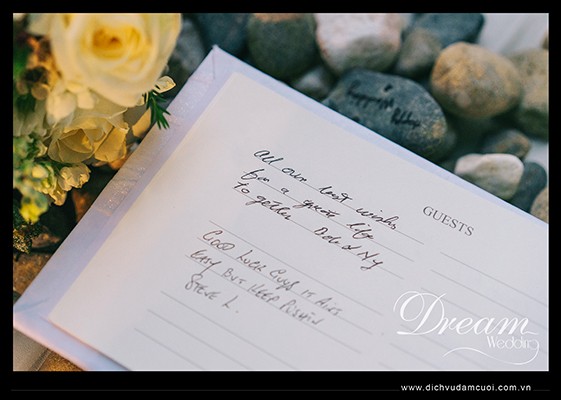 GUESTS
All our best wishs
for a great life
together Bob & Ny
GOOD LUCK GUYS IT AINS
EASY BUT KEEP PUSHIN
STEVE L.
Dream
Wedding
www.dichvudamcuoi.com.vn